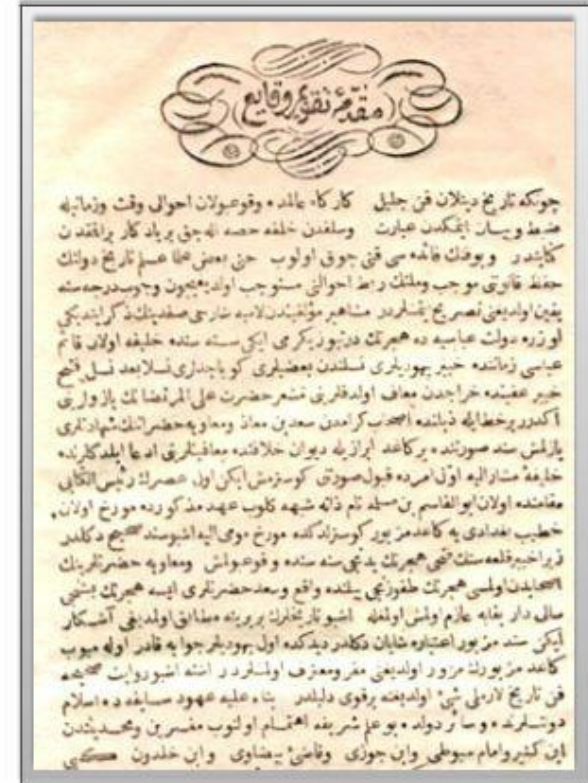 مقدمهٔ تقویم وقایع
چونکه تاریخ دینلان فن جلیل کارکاه عالمده وقوعبولان احوالی وقت وزمانیله
ضبط وبیان ایتمکدن عبارت وسلفدن خلفه حصه اله جق بر یادکار براقمقدن
کنایتدر وبونك فائده سی قتی چوق اولوب حتی بعض علما علم تاریخ دولتك
حفظ قانونی موجب وملتك ربط احوالنی مستوجب اولدیغیچون وجوب درجه سنه
یقین اولدیغنی تصریح ایتمشلردر مشاهیر مؤلفیندن لامیه شارحی صفدینك ذکر ایتدیکی
اوزره دولت عباسیه ده هجرتك درتیوز یکرمی ایکی سنه سنده خلیفه اولان قائم
عباسی زماننده خیبر یهودیلری نسلندن بعضیلری کویا جدلری نسلا بعد نسل فتح
خیبر عقبنده خراجدن معاف اولدقلرینی مشعر حضرت علی المرتضانك یازولری
اکدرر بر خط ایله ذیلنده اصحاب کرامدن سعد بن معاذ ومعاویه حضراتنك شهادتلری
یازلمش سند صورتنده بر کاغد ابراز یله دیوان خلافتده معافیتلرینی ادعا ایلدکلرنده
خلیفهٔ مشار الیه اول امرده قبول صورتی کوسترمش ایکن اول عصرك رئیس الکتابی
مقامنده اولان ابو القاسم بن مسلمه نام ذاته شبهه کلوب عهد مذکورده مورخ اولان
خطیب بغدادی یه کاغد مزبور کوسترلدکده مورخ مومی الیه اشبو سند صحیح دکلدر
زیرا خیبر قلعه سنك فتحی هجرتك یدنجی سنه سنده وقوعبولمش ومعاویه حضرتلرینك
اصحابدن اولمسی هجرتك طقوزنجی ییلنده واقع وسعد حضرتلری ایسه هجرتك بشنجی
سالی دار بقایه عازم اولمش اولمغله اشبو تاریخلرك بربرینه مطابق اولمدیغی آشکار
ایکن سند مزبور اعتباره شایان دکلدر دیدکده اول یهودیلر جوابه قادر اوله میوب
کاغد مزبورك مزور اولدیغنی مقر ومعترف اولمشلردر اشته اشبو روایت صحیحه
فن تاریخ لازملی شیٔ اولدیغنه بر قوی دلیلدر بناء علیه عهود سابقه ده اسلام
دولتلرنده وسائر دولده بو علم شریفه اهتمام اولنوب مفسرین ومحدثیندن
ابن کثیر وامام سیوطی وابن جوزی وقاضئ بیضاوی وابن خلدون کبی